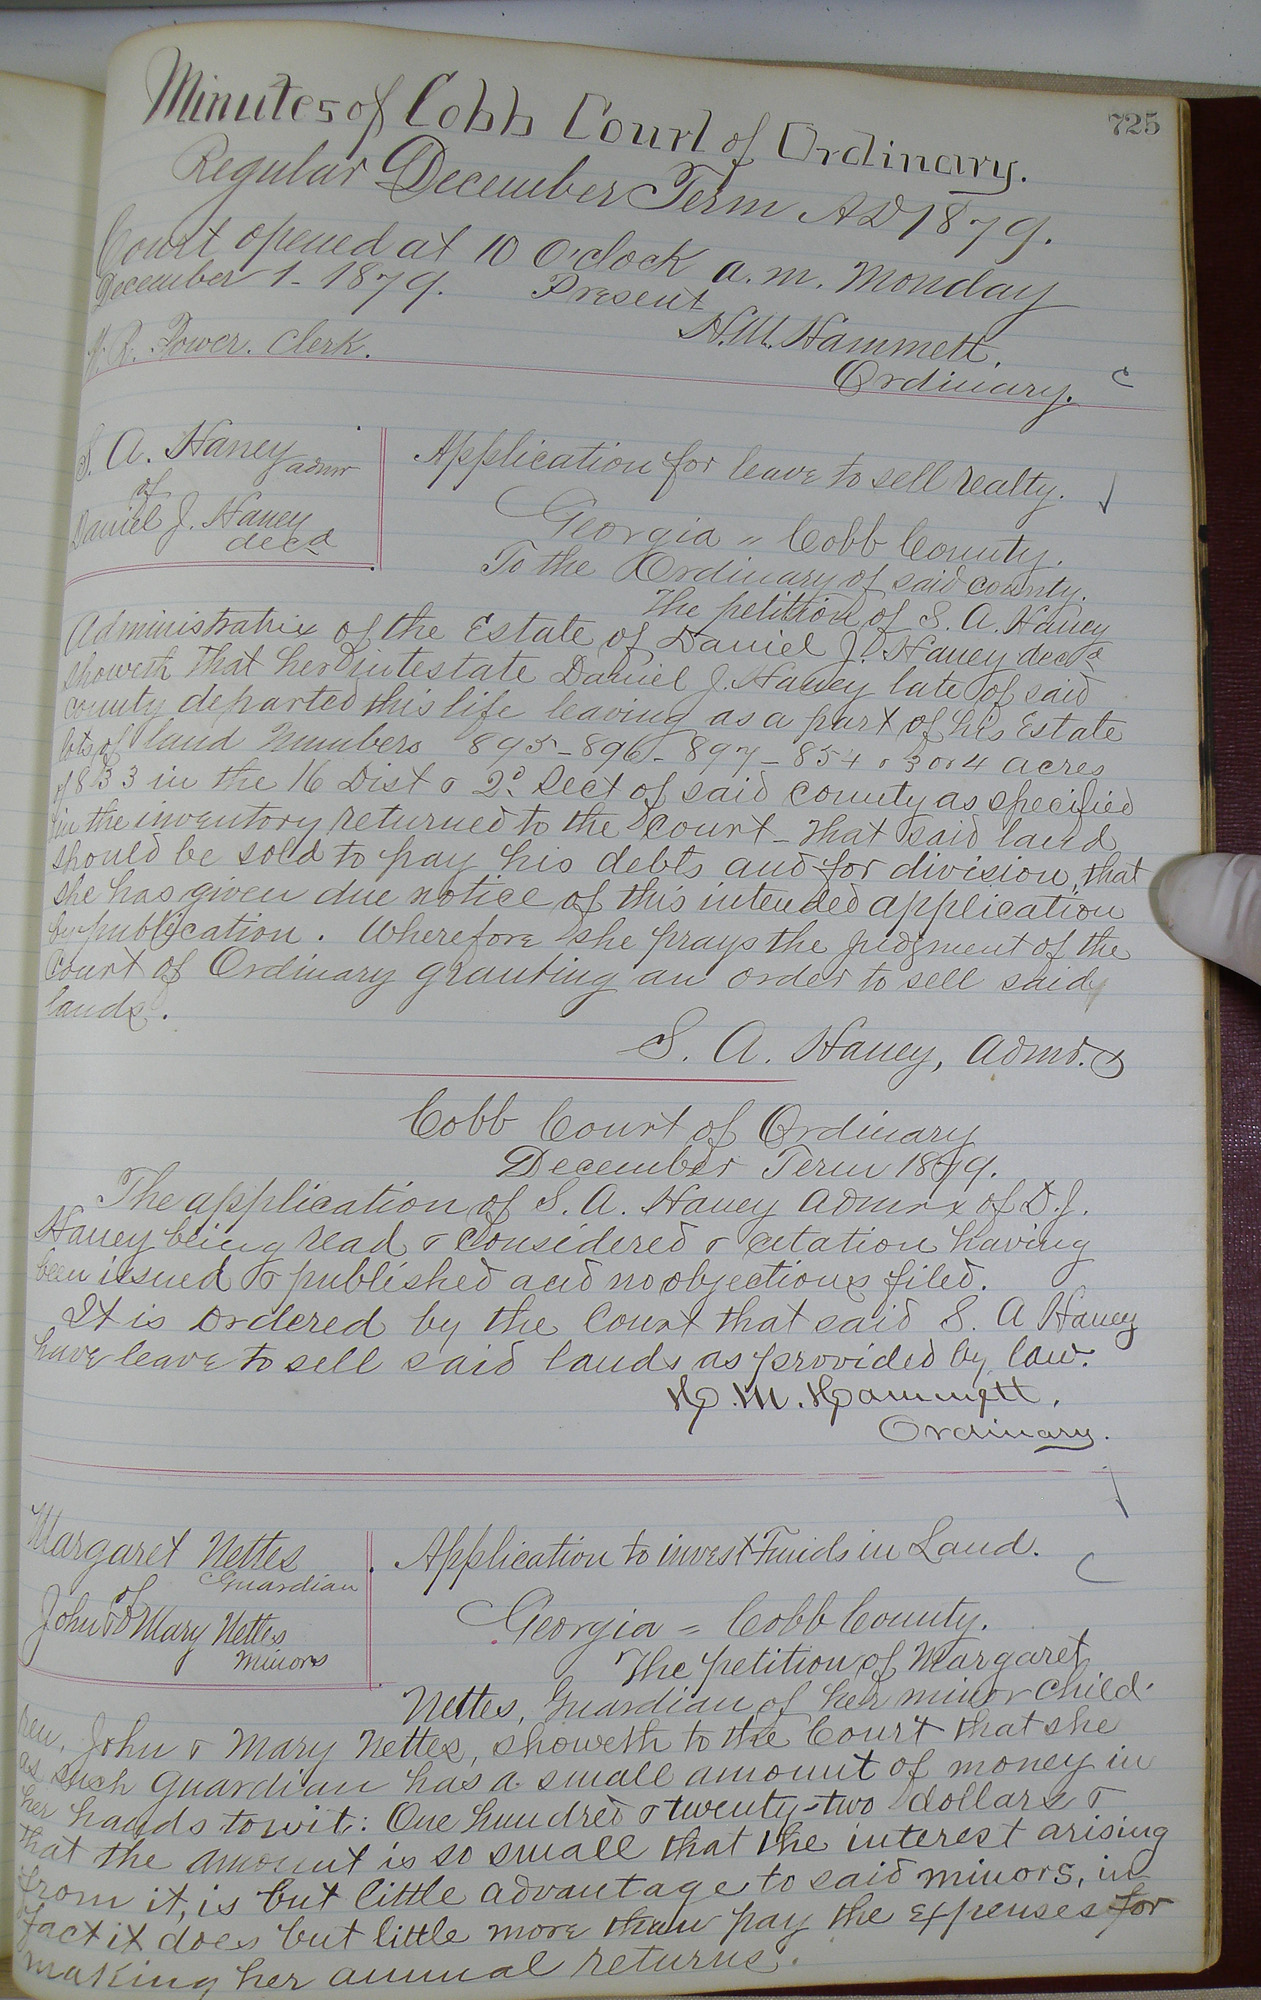 725
Minutes of Cobb Court of Ordinary.
Regular December Term AD 1879.
Court opened at 10 O'clock a.m. Monday
December 1 - 1879. Present
H.M. Hammett.
R. Power. Clerk.
Ordinary. C
S. A. Haney admr
of
Daniel J. Haney
decd
Application for leave to sell realty.
Georgia = Cobb County.
To the Ordinary of said county.
The petition of S. A. Haney
Administratrix of the Estate of Daniel J. Haney decd
showeth that her intestate Daniel J. Haney late of said
county departed this life leaving as a part of his Estate
lots of land Numbers 895 - 896 - 897 - 854 & 3 or 4 acres
of 833 in the 16 Dist & 2d Sect of said county as specified
in the inventory returned to the Court - that said land
should be sold to pay his debts and for division, that
she has given due notice of this intended application
by publication. Wherefore she prays the judgment of the
Court of Ordinary granting an order to sell said
lands.
S. A. Haney, Admr.x
Cobb Court of Ordinary
December Term 1879.
The application of S. A. Haney admrx of D.J.
Haney being read & considered & citation having
been issued & published and no objections filed.
It is ordered by the Court that said S. A Haney
have leave to sell said lands as provided by law.
H.M. Hammett.
Ordinary.
Margaret Nettes
Guardian
of
John & Mary Nettes
minors
Application to invest Funds in Land. C
Georgia = Cobb County.
The petition of Margaret
Nettes, Guardian of her minor child-
ren, John & Mary Nettes, showeth to the Court that she
as such guardian has a small amount of money in
her hands to wit: One hundred & twenty-two dollars &
that the amount is so small that the interest arising
from it, is but little advantage to said minors, in
fact it does but little more than pay the expenses for
making her annual returns.